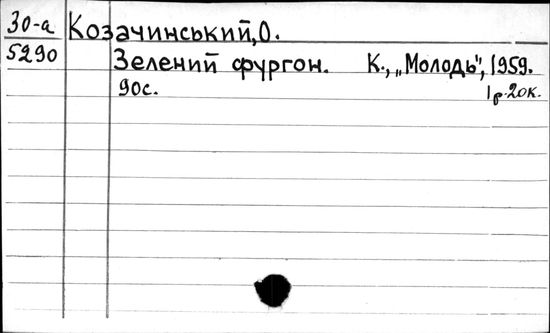 30-а Козачинський, О.
5290 Зелений фургон. К., „Молодь", 1959.
90с. 1р.20к.